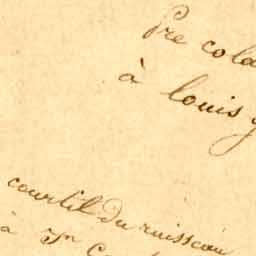 Pre cola
à louis
courtil du ruisseau
à Jn Co